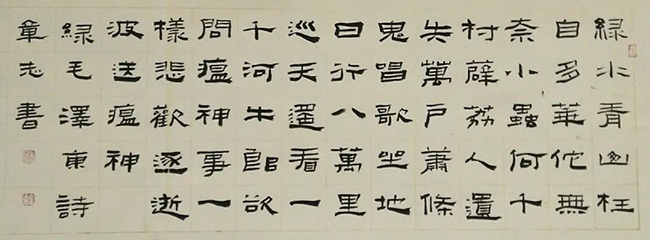 綠水青山枉
自多華佗無
奈小蟲何千
村薜荔人遺
失萬戶蕭條
鬼唱歌坐地
日行八萬里
巡天遙看一
千河牛郎欲
問瘟神事一
樣悲歡逐逝
波送瘟神
綠毛澤東詩
章志書